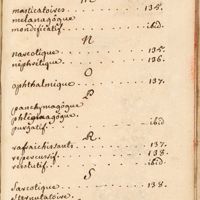 M
masticatoires . . . . . . . 134.
melanagôgue
mondificatif . . . . . . . ibid.
N
narcotique . . . . . . . 135.
néphrétique . . . . . . . 136.
O
ophthalmique . . . . . . . 137.
P
panchymagôgue
phlegmagôgue
purgatif . . . . . . . ibid
R
raffraichissants . . . . . . . 137.
repercussif . . . . . . . 138.
resolutif . . . . . . . ibid.
S
sarcotique . . . . . . . 138.
sternutatoire